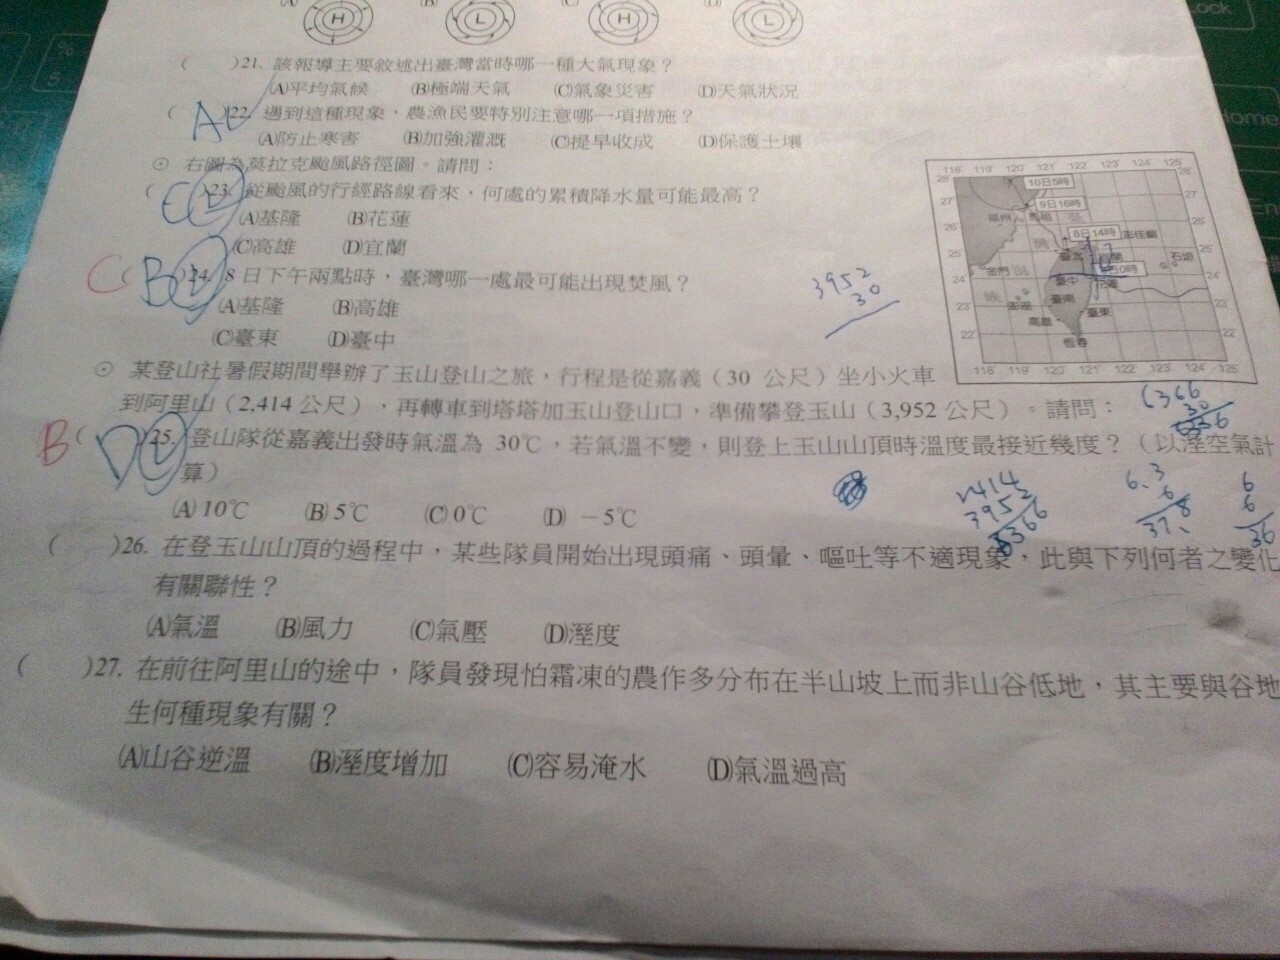 (A) (B) (C) (D)
H L H L
( )21. 該報導主要敘述出臺灣當時哪一種大氣現象？
(A)平均氣候 (B)極端天氣 (C)氣象災害 (D)天氣狀況
( A )22. 遇到這種現象，農漁民要特別注意哪一項措施？
(A)防止寒害 (B)加強灌溉 (C)提早收成 (D)保護土壤
⊙ 右圖為莫拉克颱風路徑圖。請問：
( )23. 從颱風的行經路線看來，何處的累積降水量可能最高？
(A)基隆 (B)花蓮
(C)高雄 (D)宜蘭
C ( B )24. 8 日下午兩點時，臺灣哪一處最可能出現焚風？
(A)基隆 (B)高雄
(C)臺東 (D)臺中
118° 119° 120° 121° 122° 123° 124° 125°
28° 28°
10日5時
27° 27°
9日16時
福州 馬祖
26° 26°
8日14時 彭佳嶼
25° 臺北 宜蘭 25°
金門 0時 石垣
24° 臺中 花蓮 24°
23° 澎湖 臺南 臺東 23°
22° 高雄 22°
恆春
118° 119° 120° 121° 122° 123° 124° 125°
3952
30
⊙ 某登山社暑假期間舉辦了玉山登山之旅，行程是從嘉義（30 公尺）坐小火車
到阿里山（2,414 公尺），再轉車到塔塔加玉山登山口，準備攀登玉山（3,952 公尺）。請問：
6366
30
6336
B ( D )25. 登山隊從嘉義出發時氣溫為 30℃，若氣溫不變，則登上玉山山頂時溫度最接近幾度？（以溼空氣計
算）
(A) 10℃ (B) 5℃ (C) 0℃ (D) －5℃
2414
3952
6366
6.3
6
37.8
6
6
36
( )26. 在登玉山山頂的過程中，某些隊員開始出現頭痛、頭暈、嘔吐等不適現象，此與下列何者之變化
有關聯性？
(A)氣溫 (B)風力 (C)氣壓 (D)溼度
( )27. 在前往阿里山的途中，隊員發現怕霜凍的農作多分布在半山坡上而非山谷低地，其主要與谷地
生何種現象有關？
(A)山谷逆溫 (B)溼度增加 (C)容易淹水 (D)氣溫過高
Lock
%
5
Home